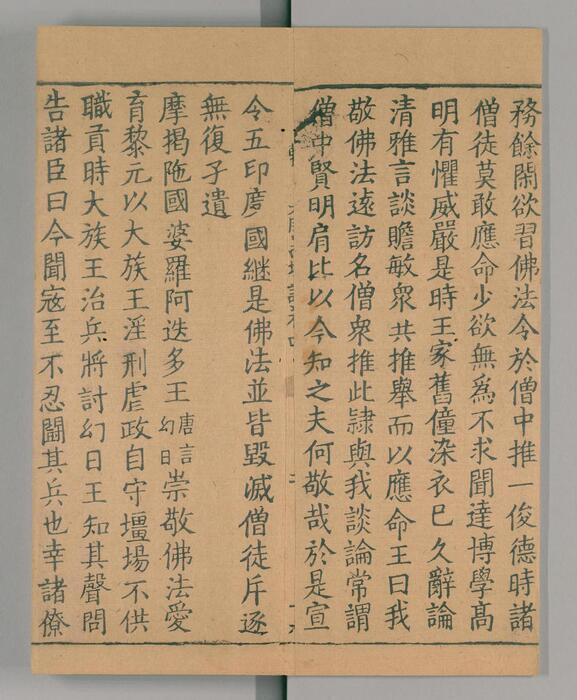 務餘閑欲習佛法令於僧中推一俊德時諸
僧徒莫敢應命少欲無爲不求聞達博學高
明有懼威嚴是時王家舊僮染衣已久辭論
清雅言談贍敏衆共推舉而以應命王曰我
敬佛法遠訪名僧衆推此隷與我談論常謂
僧中賢明肩比以今知之夫何敬哉於是宣
令五印度國継是佛法並皆毀滅僧徒斥逐
無復孑遺
摩揭陁國婆羅阿迭多王唐言幻日崇敬佛法愛
育黎元以大族王淫刑虐政自守壃場不供
職貢時大族王治兵將討幻日王知其聲問
告諸臣曰今聞寇至不忍鬭其兵也幸諸僚